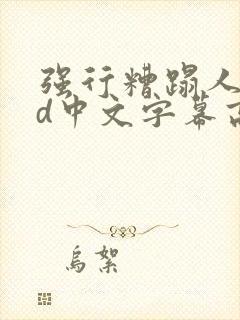 强行糟蹋人
d中文字幕高
乌絮